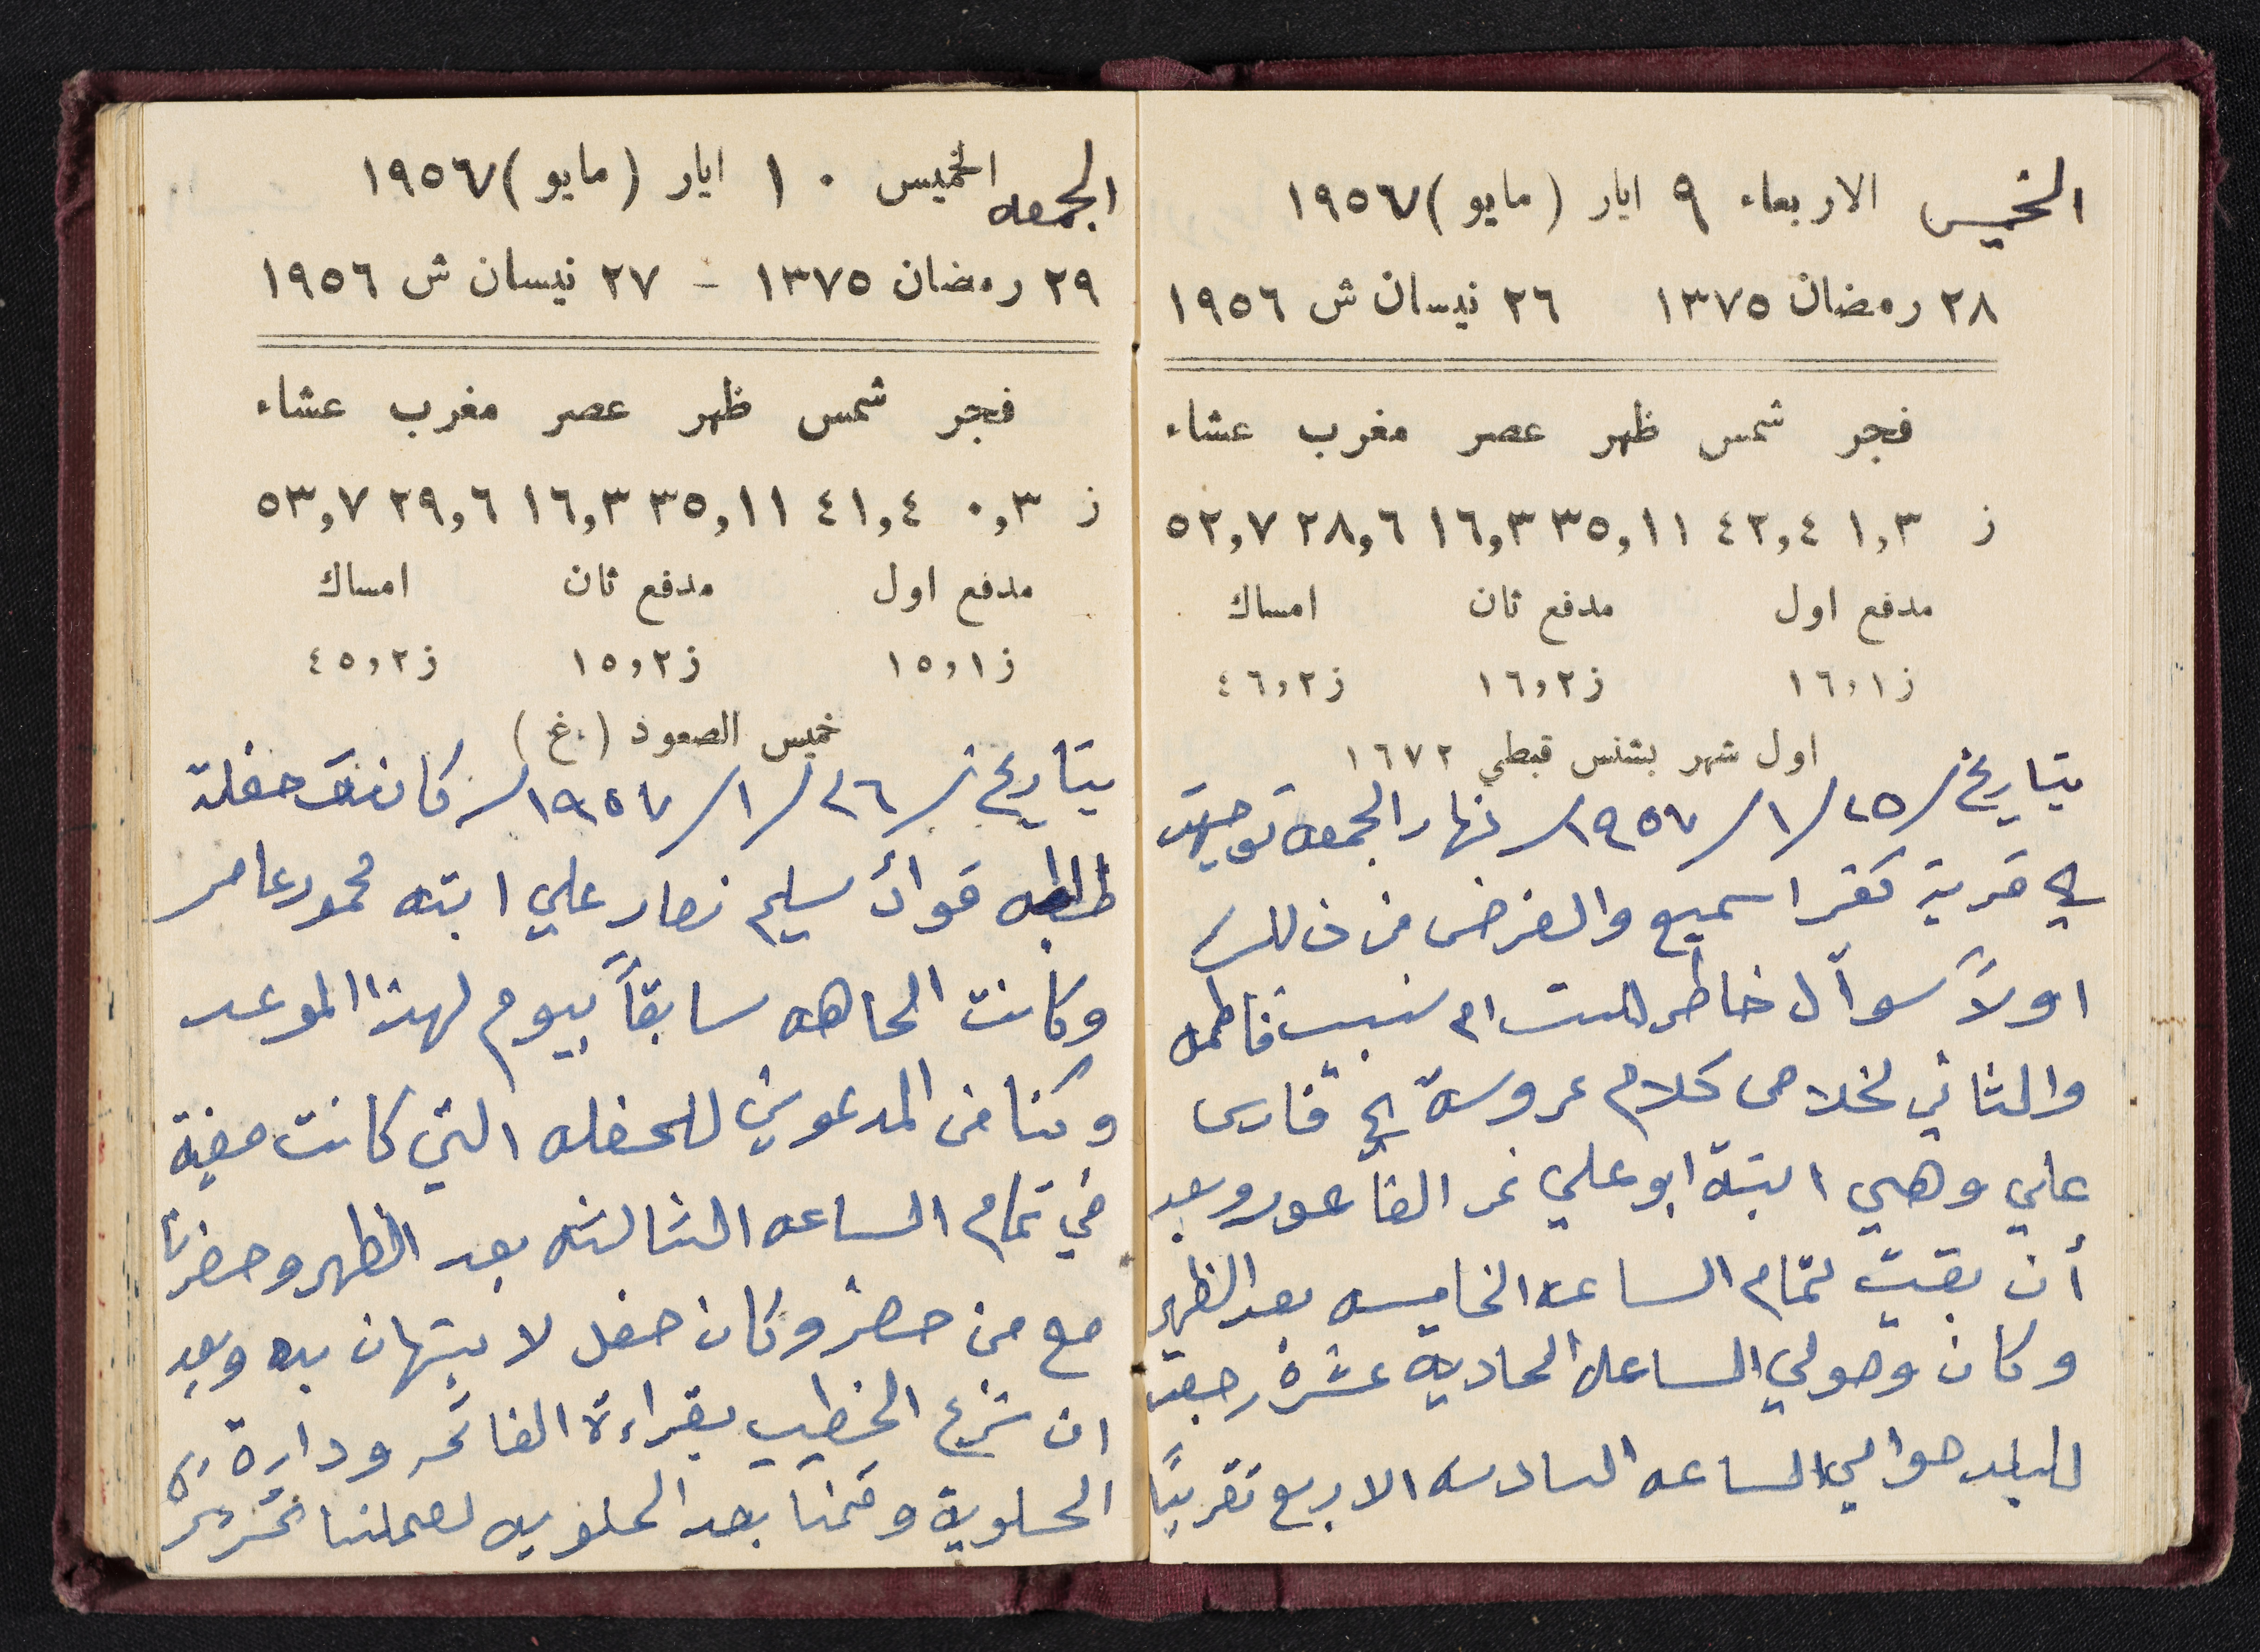 الخميس الاربعاء ٩ ايار (مايو) ١٩٥٦٧
٢٨ رمضان ١٣٧٥ ٢٦ نيسان ش ١٩٥٦
فجر شمس ظهر عصر مغرب عشاء
ز ١,٣ ٤٢,٤ ٣٥,١١ ١٦,٣ ٢٨,٦ ٥٢,٧
مدفع اول مدفع ثان امساك
ز١٦,١ ز١٦,٢ ز٤٦,٢
اول شهر بشنس قبطي ١٦٧٢
بتاريخ /٢٥/١/١٩٥٧/ نهار الجمعه توجهت
الى قرية كفر اسميع والغرض من ذلك
اولاً سوآل خاطر الست ام نسيب فاطمه
والثاني لخلاص كلام عروسة فارس
علي وهي ابنة ابو علي نمر الفاعور وبعد
أن بقيت لتمام الساعه الخامسه بعد الظهر
وكان وصولي الساعه الحاديه عشرة رجعت
للبلد حوالي الساعه السادسه الا ربع تقريباً
الجمعه الخميس ١٠ ايار (مايو) ١٩٥٦٧
٢٩ رمضان ١٣٧٥ - ٢٧ نيسان ش ١٩٥٦
فجر شمس ظهر عصر مغرب عشاء
ز ٠,٣ ٤١,٤ ٣٥,١١ ١٦,٣ ٢٩,٦ ٥٣,٧
مدفع اول مدفع ثان امساك
ز١٥,١ ز١٥,٢ ز٤٥,٢
خميس الصعود (غ.)
بتاريخ /٢٦/١/١٩٥٧/ كانت حفلة
فواد سليم نصار علي ابنه محمود عامر
وكانت الجاهه سابقاً بيوم لهذا الموعد
وكنا من المدعوين للحفله التي كانت معينه
في تمام الساعه الثالثه بعد الظهر وحضرنا
مع من حضر وكان حفل لا يتهان به وبعد
ان شرع الخطيب بقراءة الفاتحه ودارة
الحلوية وقمنا بعد الحلويه لعملنا